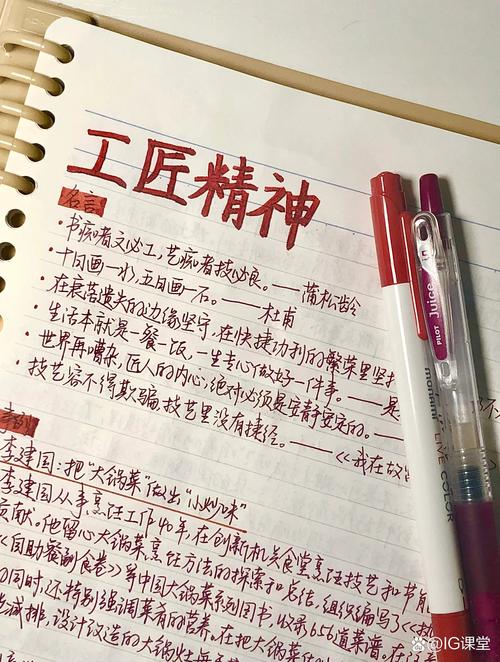 工匠精神
名言
·书痴者文必工,艺痴者技必良。——蒲松龄
·十日画一水,五日画一石。——杜甫
·在衰落遗失的边缘坚守,在快捷功利的繁荣里坚
·生活本就是一餐一饭,一生专心做好一件事。——是
·世界再嘈杂,匠人的内心,绝对必须是安静安定的。——
·技艺容不得欺骗,技艺里没有捷径。——《我在故
事例
李建国:把"大锅菜"做出"小炒味"
李建国从事烹饪工作40年,在创新机关食堂烹饪技艺和节能
贡献。他留心大锅菜烹饪方法的探索和总结,组织编写了《机
《自助餐副食卷》等中国大锅菜系列图书,收录656道菜谱。在
同时,还特别强调菜肴的营养。在把大锅菜
减排,设计改造的大锅灶每
PILOT Juice
LIVE COLOR
@IG课堂